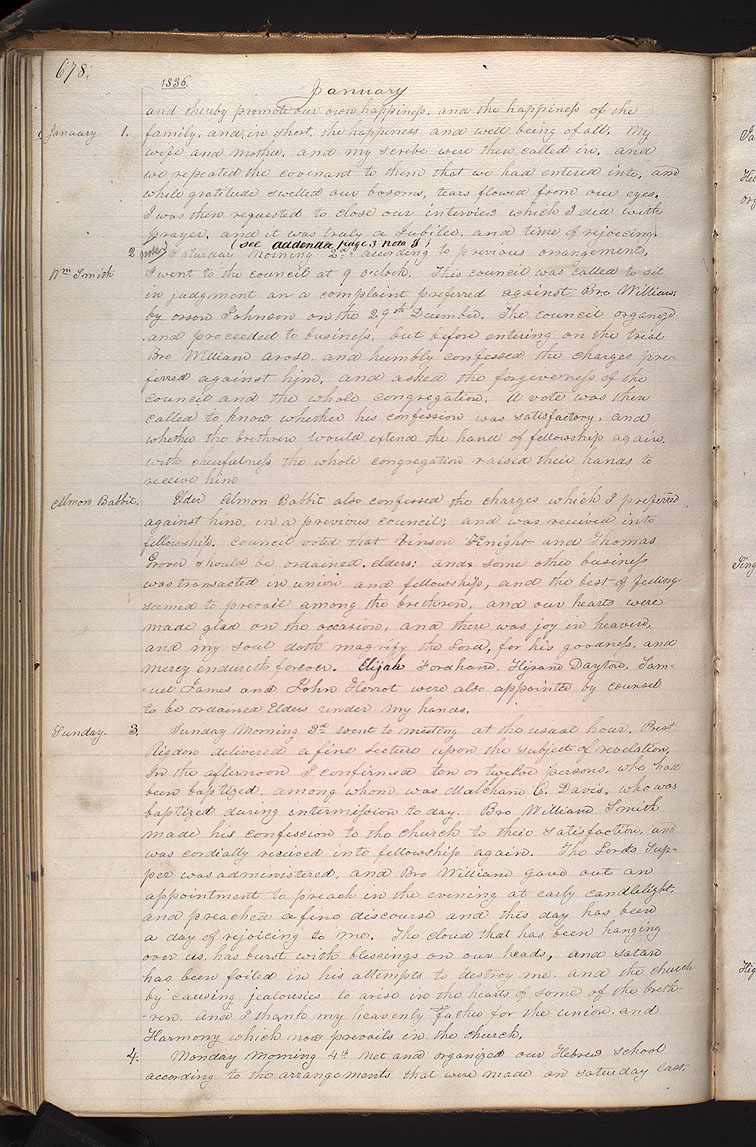 678.
1836.
January
and thereby promote our own happiness, and the happiness of the
January 1. family, and, in short, the happiness and well being of all. My
wife and mother, and my scribe were then called in, and
we repeated the covenant to them that we had entered into, and
while gratitude swelled our bosoms, tears flowed from our eyes.
I was then requested to close our interview which I did with
prayer, and it was truly a Jubilee, and time of rejoicing.
(see addenda page 3 note 8)
2 note 8 Saturday Morning 2nd according to previous arrangements,
Wm Smith I went to the council at 9 o'clock. This council was called to sit
in judgment on a complaint preferred against Bro William
by orson Johnson on the 29th December. The council organized
and proceeded to business, but before entering on the trial
Bro William arose, and humbly confessed the charges pre-
ferred against him, and asked the forgiveness of the
council and the whole congregation. A vote was then
called to know whether his confession was satisfactory, and
whether the brethren would extend the hand of fellowship again.
With cheerfulness the whole congregation raised their hands to
receive him
Almon Babbit. Elder Almon Babbit also confessed the charges which I preferred
against him in a previous council; and was received into
fellowship. Council voted that Vinson Knight and Thomas
Grover should be ordained elders: and some other business
was transacted in union and fellowship, and the best of feeling
seemed to prevail among the brethren, and our hearts were
made glad on the occasion, and there was joy in heaven,
and my soul doth magnify the Lord, for his goodness, and
mercy endureth forever. Elijah Fordham, Hyram Dayton, Sam-
uel James and John Herrot were also appointed by counsel
to be ordained Elders under my hands.
Sunday. 3. Sunday Morning 3d went to meeting at the usual hour. Prest
Rigdon delivered a fine lecture upon the subject of revelation,
In the afternoon I confirmed ten or twelve persons, who had
been baptized, among whom was Malcham C. Davis, who was
baptized during intermission to day. Bro William Smith
made his confession to the church to their satisfaction, and
was cordially received into fellowship again. The Lords Sup-
per was administered, and Bro William gave out an
appointment to preach in the evening at early candlelight
and preached a fine discourse and this day has been
a day of rejoicing to me. The cloud that has been hanging
over us, has burst with blessings on our heads, and satan
has been foiled in his attempts to destroy me and the church
by causing jealousies to arise in the hearts of some of the breth-
-ren, and I thank my heavenly father for the union and
Harmony which now prevails in the church.
4. Monday Morning 4th Met and organized our Hebrew school
according to the arrangements that were made on saturday last.